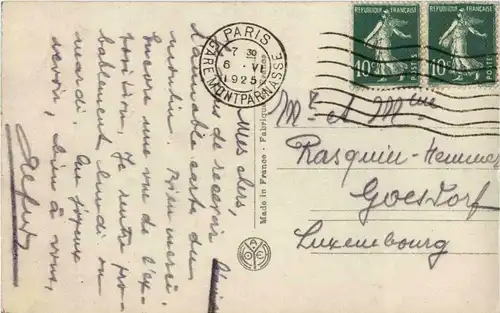 Mes chers,
de recevoir
l'aimable carte du
moulin. Bien merci.
Encore une vue de l'ex-
position. Je rentre pro-
bablement lundi ou
mardi. Au joyeux
revoir, bien à vous,
PARIS
7 30
6 · VI
1925
GARE MONTPARNASSE
Made in France - Fabriqué
REPUBLIQUE FRANÇAISE
10c
POSTES
REPUBLIQUE FRANÇAISE
10c
POSTES
Mr et Mme
Rasquin-Hemmer
Goesdorf
Luxembourg